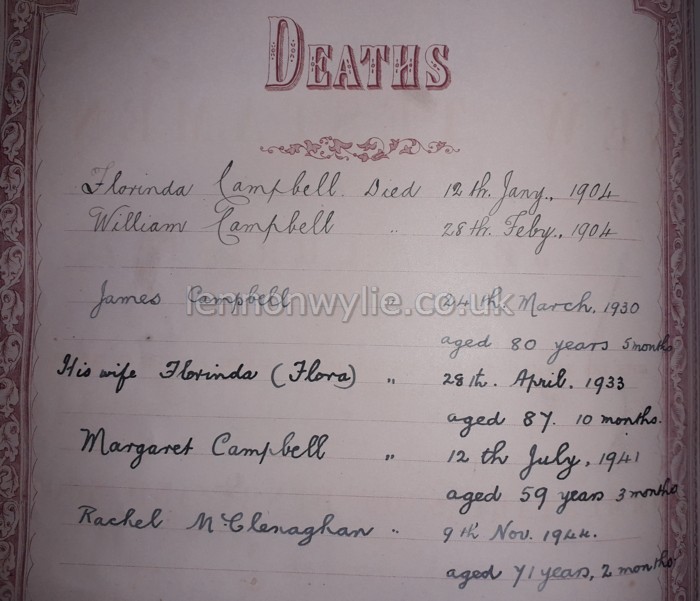 DEATHS
Florinda Campbell. Died 12th. Jany., 1904
William Campbell " 28th. Feby., 1904
James Campbell " 24th. March, 1930
aged 80 years 5 months
His wife Florinda (Flora) " 28th. April. 1933
aged 87. 10 months.
Margaret Campbell " 12th July, 1941
aged 59 years 3 months
Rachel McClenaghan " 9th Nov. 1944.
aged 71 years, 2 months
lennonwylie.co.uk